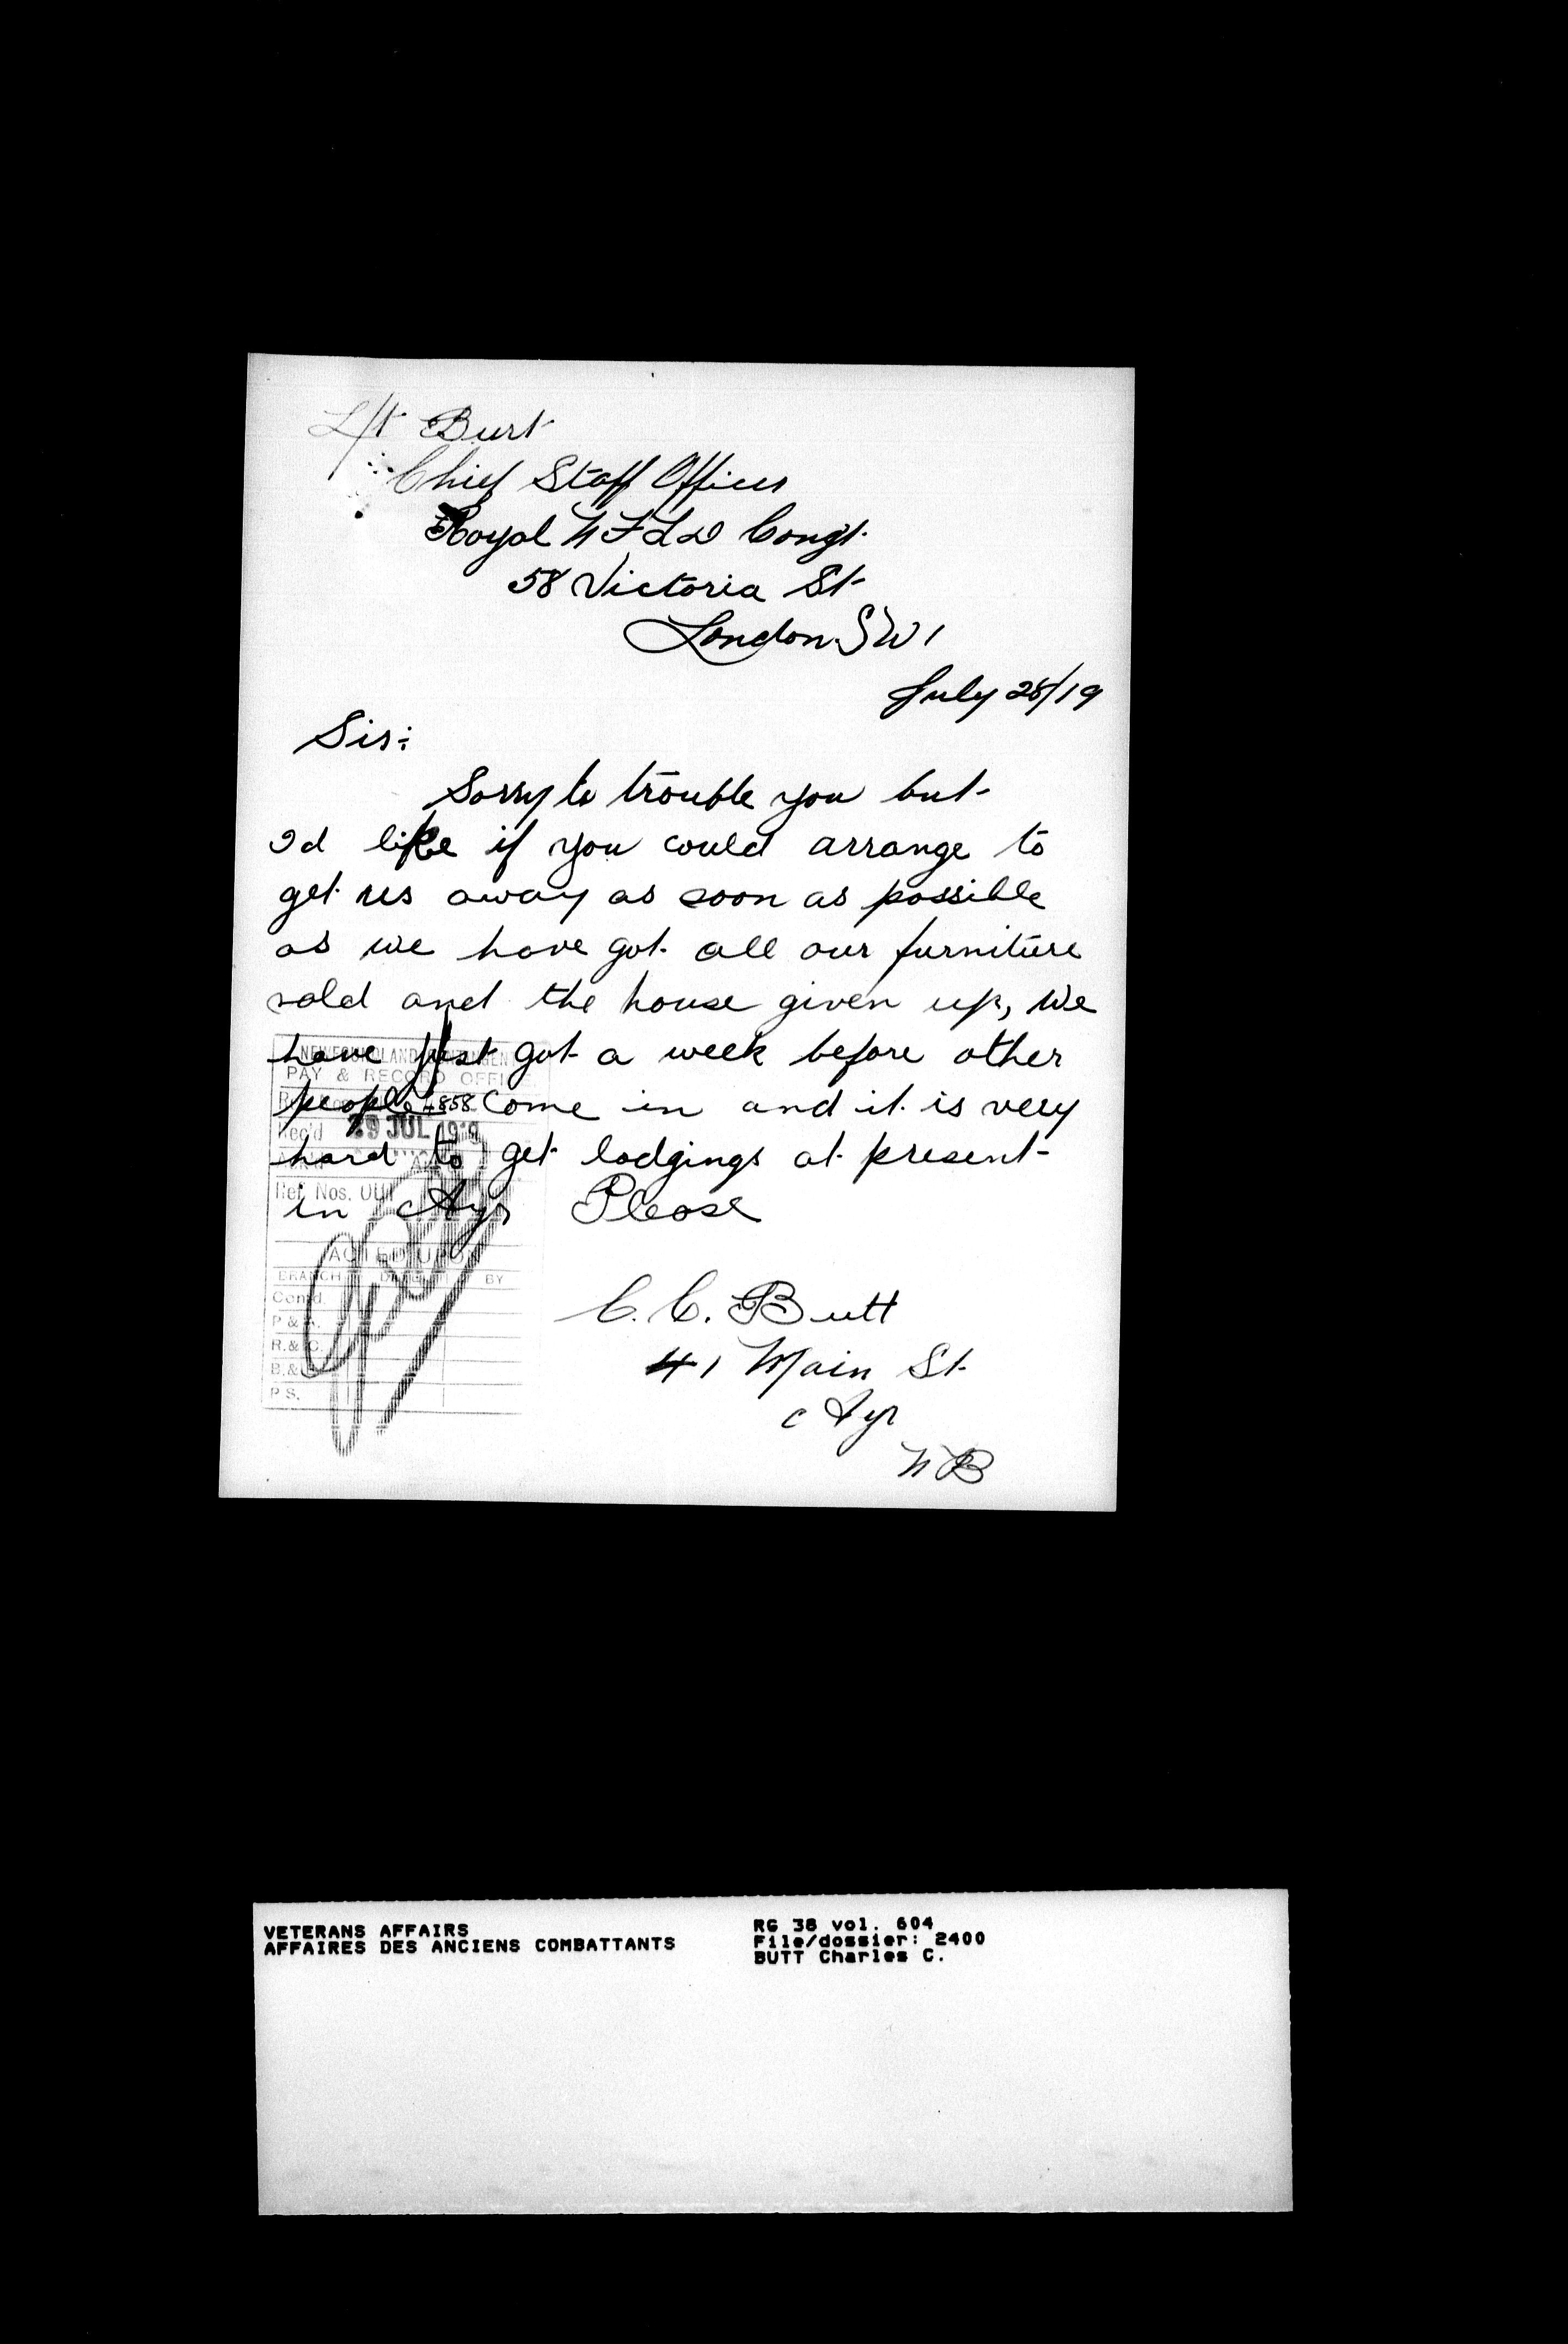 L/t Burt
Chief Staff Officer
Royal NFLD Congt.
58 Victoria St
London SW1
July 28/19
Sir:
Sorry to trouble you but
I'd like if you could arrange to
get us away as soon as possible
as we have got all our furniture
sold and the house given up, We
have just got a week before other
people come in and it is very
hard to get lodgings at present
in Ayr Please
C. C. Butt
41 Main St
Ayr
NB
NEWFOUNDLAND CONTINGENT
PAY & RECORD OFFICE
4858
Rec'd 29 JUL 1919
Ref. Nos. OUT
ACTED UPON
BRANCH DATE BY
Com'd.
P & A.
R. & C.
B. &
P S.
VETERANS AFFAIRS
AFFAIRES DES ANCIENS COMBATTANTS
RG 38 vol. 604
File/dossier: 2400
BUTT Charles C.